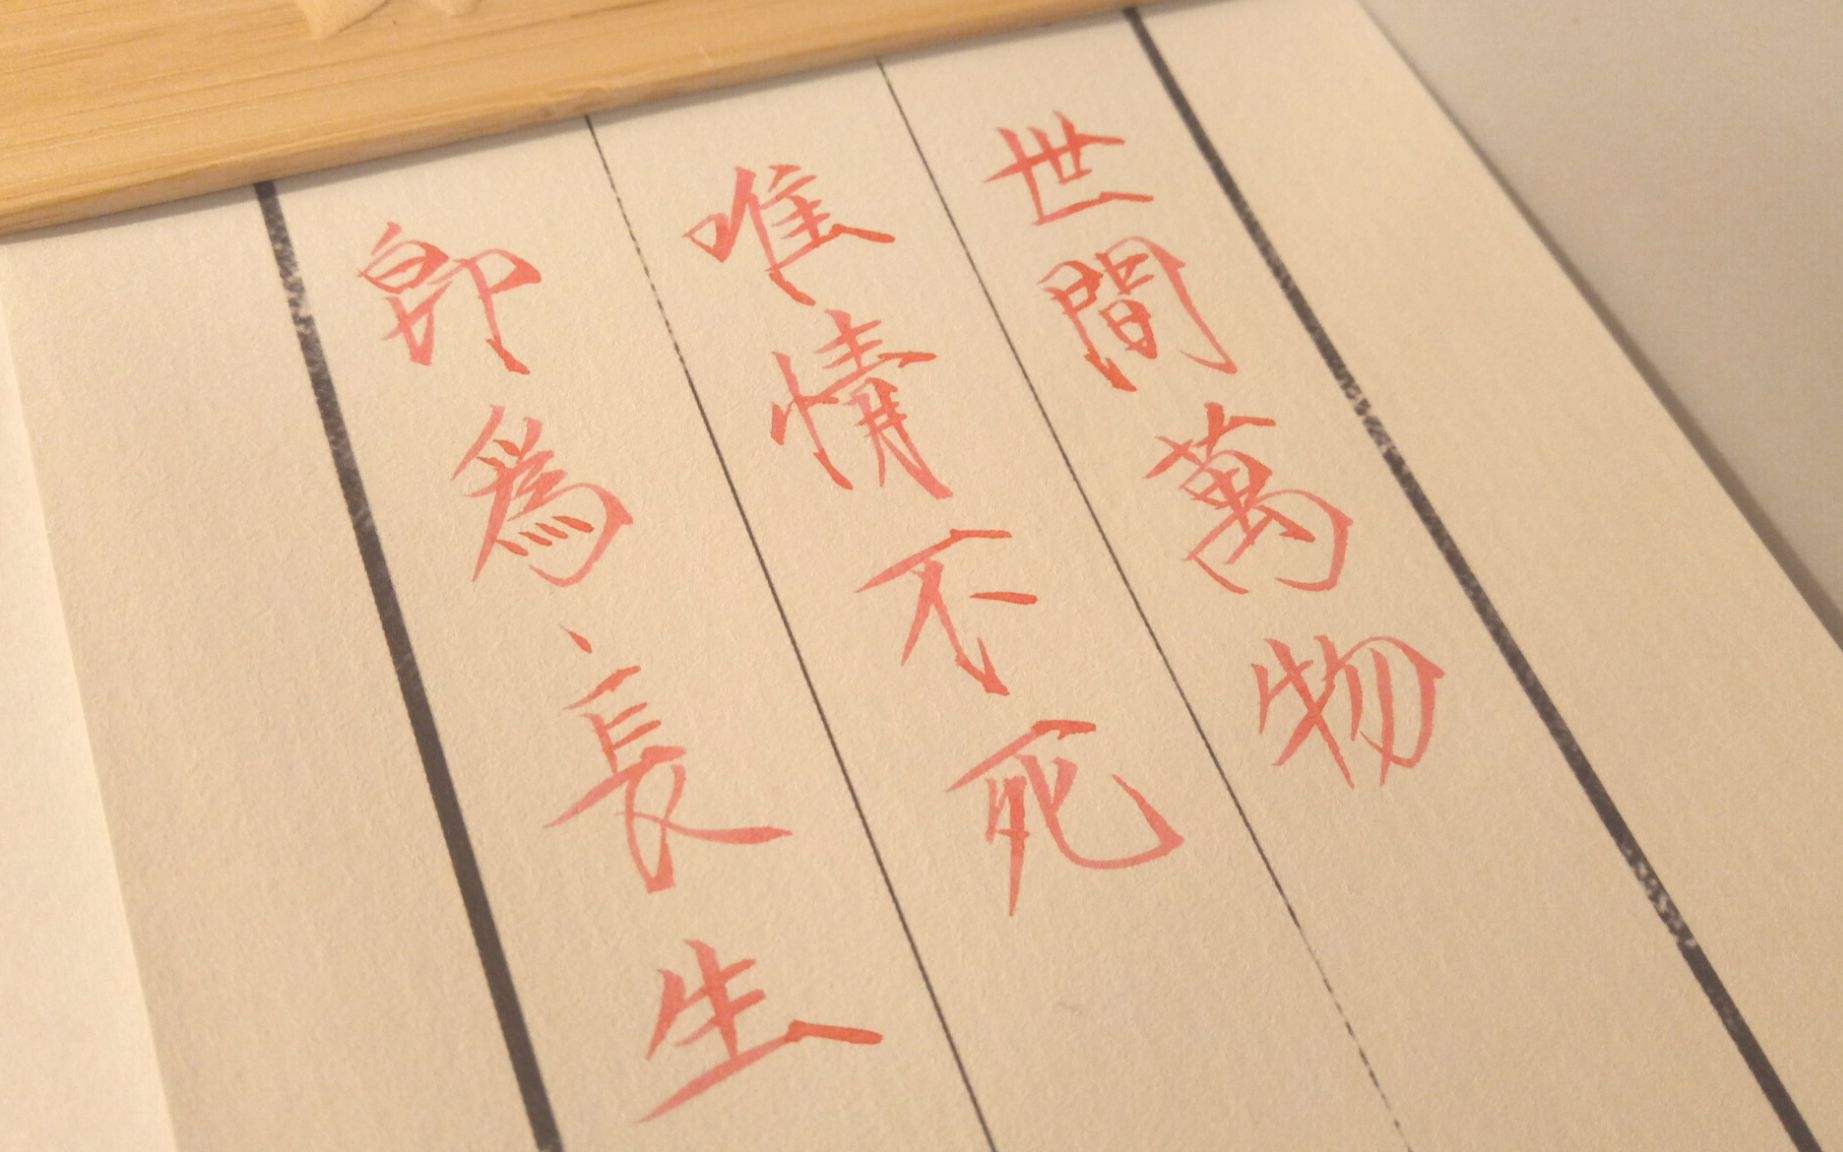 世間萬物
唯情不死
即為長生